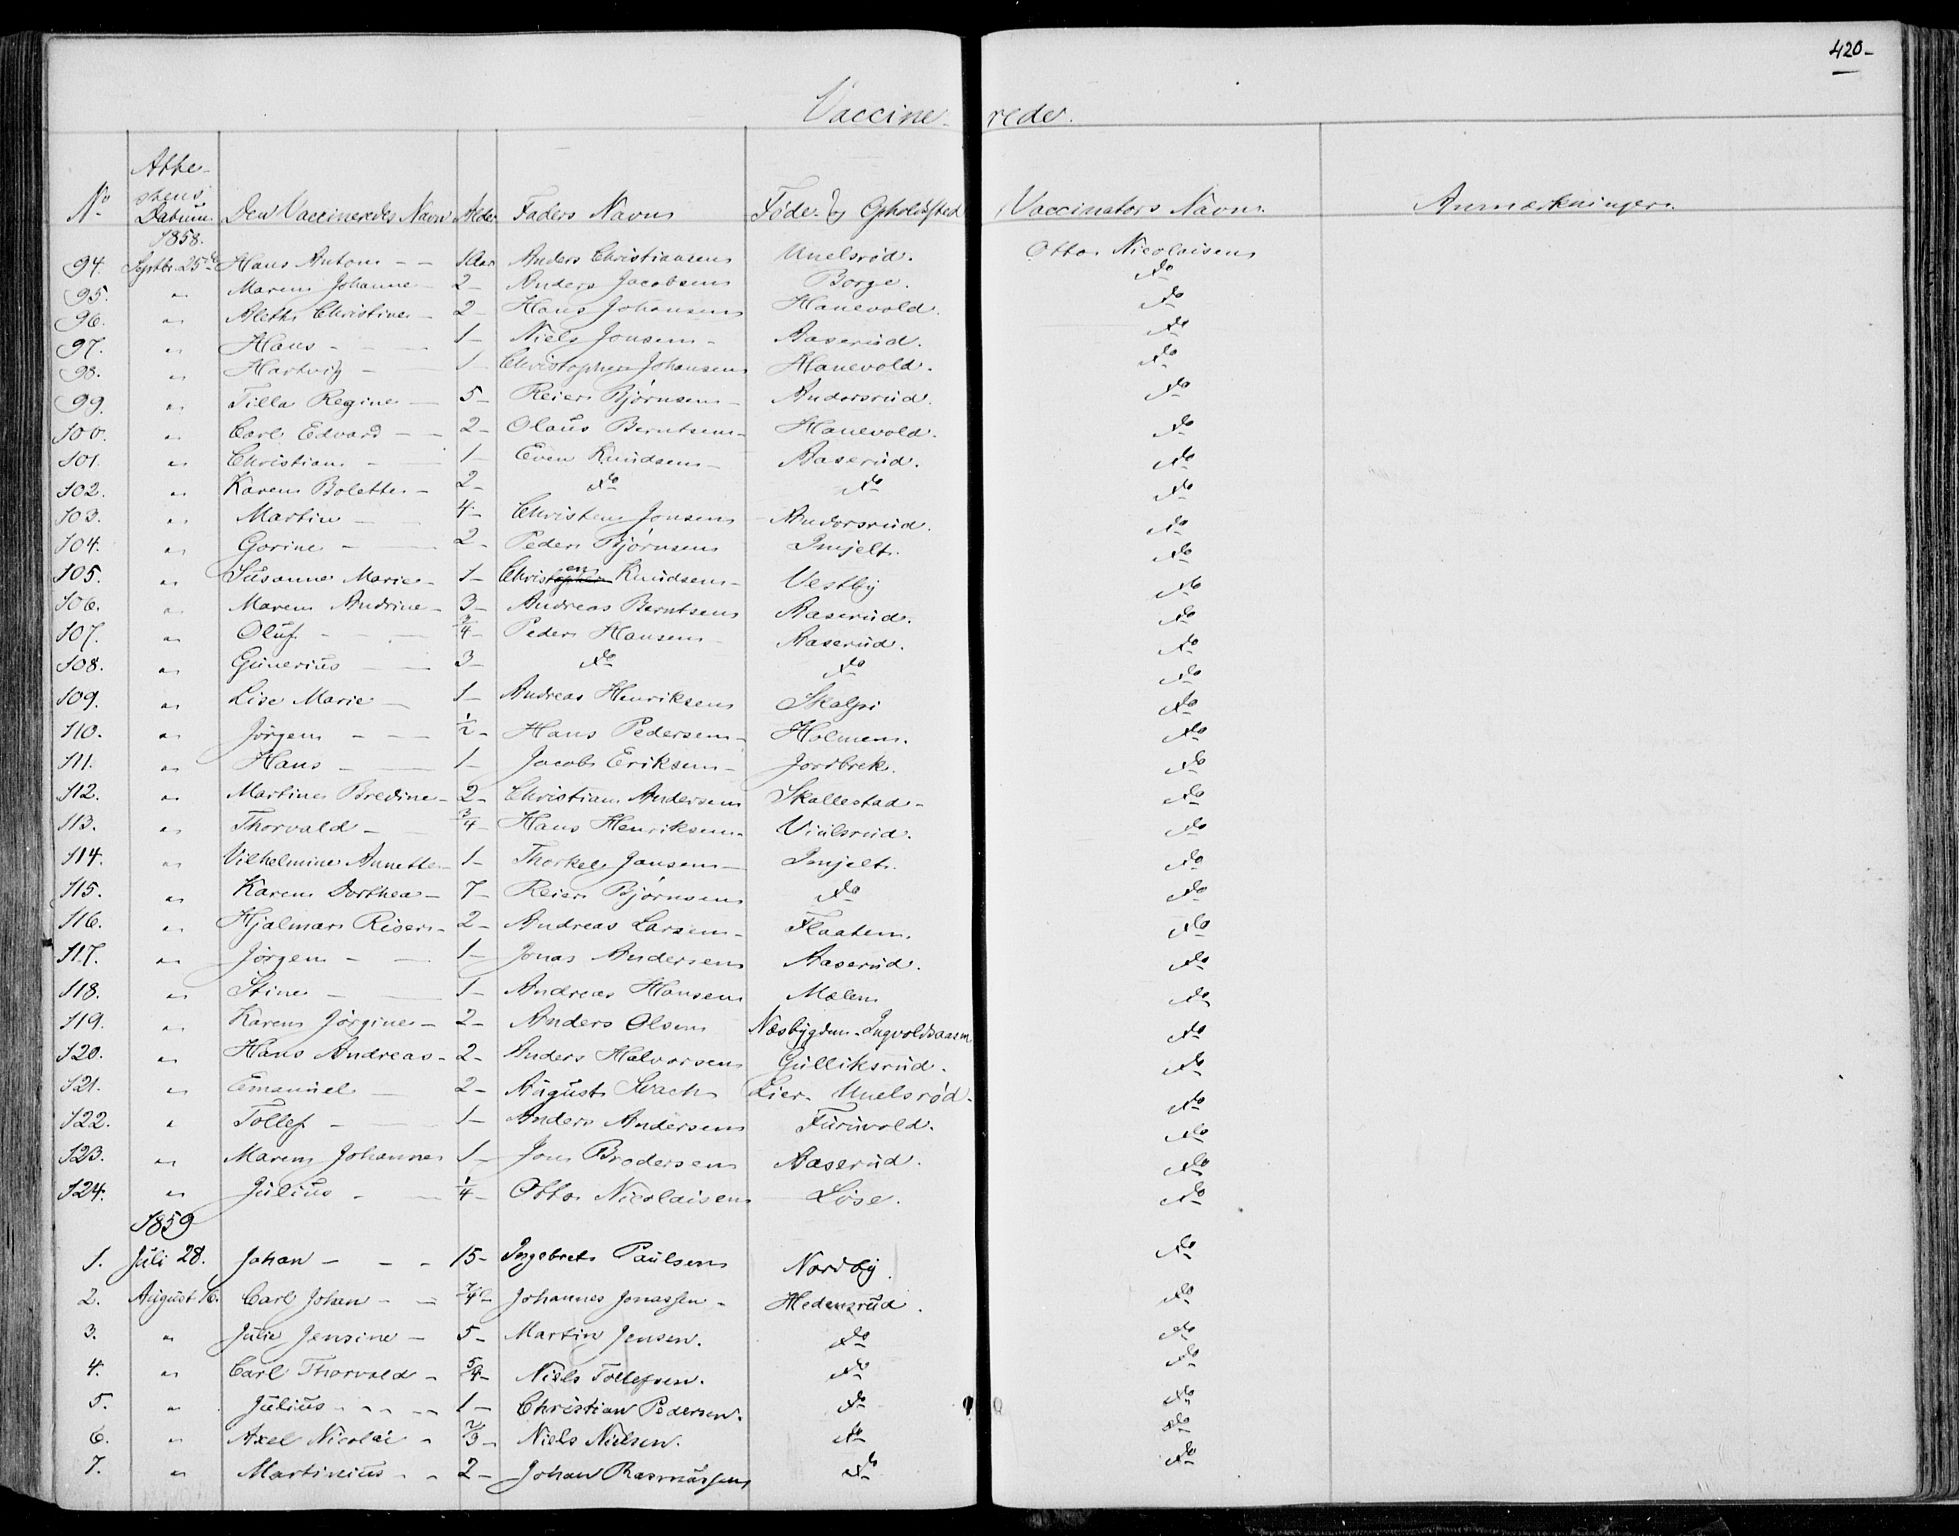 420-
Vaccine-rede.
No Attestens Datum. Den Vaccineredes Navn Alder Faders Navn Føde- og Opholdssted Vaccinators Navn. Anmærkninger.
1858.
94. Septbr. 25de Hans Anton - - 1 Aar Anders Christiansen Unelsrød. Otto Nicolaisen
95. " Maren Johanne - 2 - Anders Jacobsen Borge. do
96. " Alethe Christine - 2 - Hans Johansen Hanevold. do
97. " Hans - - 1 - Niels Jonsen - Aaserud. do
98. " Hartvig - - 1 Christopher Johansen Hanevold. do
99. " Tilla Regine - 5 - Reier Bjørnsen - Andorsrud. do
100. " Carl Edvard - - 2 - Olaus Berntsen - Hanevold. do
101. " Christian - - 1 - Even Knudsen - Aaserud. do
102. " Karen Bolette - 2 - do do do
103. " Martin - - 4 - Christen Jonsen - Andorsrud. do
104. " Gorine - - 2 - Peder Bjørnsen Imjelt. do
105. " Susanne Marie - 1 - Christen Knudsen - Vestby do
106. " Maren Andrine - 3 - Andreas Berntsen Aaserud. do
107. " Oluf - - 3/4 - Peder Hansen - Aaserud. do
108. " Gunerius - - 3 - do do do
109. " Lise Marie - 1 - Andreas Henriksen Skalpi do
110. " Jørgen - - 1/2 - Hans Pedersen - Holmen. do
111. " Hans - - 1 - Jacob Eriksen - Jordbrek. do
112. " Martine Bredine - 2 - Christian Andersen Skallestad - do
113. " Thorvald - - 3/4 - Hans Henriksen - Viulsrud. do
114. " Vilhelmine Annette 1 - Thorkel Jansen - Imjelt. do
115. " Karen Dorthea - 7 - Reier Bjørnsen do do
116. " Hjalmar Riser - 2 - Andreas Larsen - Flaaten. do
117. " Jørgen - - 1 - Jonas Andersen Aaserud. do
118. " Stine - - 1 - Andreas Hansen Mælen do
119. " Karen Jørgine - 2 - Anders Olsen Næsbygden - Ingvoldsaasen do
120. " Hans Andreas - 2 - Anders Halvorsen Gulliksrud. do
121. " Emanuel - 2 - August Svach Lier - Unelsrød - do
122. " Tollef - - 1 - Anders Andersen Furuvold. do
123. " Maren Johanne 1 - Jon Brodersen Aaserud. do
124. " Julius - - 1/4 - Otto Nicolaisen Løse. do
1859
1. Juli 28. Johan - - - 15 - Ingebret Paulsen Nordby. do
2. August 16. Carl Johan - - Johannes Jonassen - Hedensrud. do
3. " Julie Jensine - 5 - Martin Jensen. do do
4. " Carl Thorvald - 5/4 - Niels Tollefsen. do do
5. " Julius - - - 1 - Christian Pedersen. do do
6. " Axel Nicolai - 2/3 - Niels Nielsen. do do
7. " Martinius - - 2 - Johan Rasmussen do do